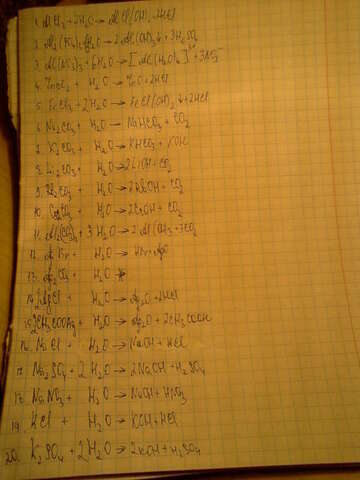 1. AlCl3 + 2H2O → AlCl(OH)2 + 2HCl
2. Al2(SO4)3 + 6H2O → 2Al(OH)3↓ + 3H2SO4
3. Al(NO3)3 + 6H2O → [Al(H2O)6]3+ + 3NO3-
4. + H2O → + 2HCl
5. FeCl3 + 2H2O → FeCl(OH)2↓ + 2HCl
6. Na2CO3 + H2O → NaHCO3 + CO2
7. K2CO3 + H2O → KHCO3 + KOH
8. Li2CO3 + H2O → 2LiOH + CO2
9. Rb2CO3 + H2O → 2RbOH + CO2
10. Cs2CO3 + H2O → 2CsOH + CO2
11. Al2(CO3)3 + 3H2O → 2Al(OH)3 + 3CO2
12. + H2O →
13. Ag2CO3 + H2O
14. 2AgCl + H2O → Ag2O + 2HCl
15. 2CH3COOAg + H2O → Ag2O + 2CH3COOH
16. NaCl + H2O → NaOH + HCl
17. Na2SO4 + 2H2O → 2NaOH + H2SO4
18. NaNO3 + H2O → NaOH + HNO3
19. KCl + H2O → KOH + HCl
20. K2SO4 + 2H2O → 2KOH + H2SO4